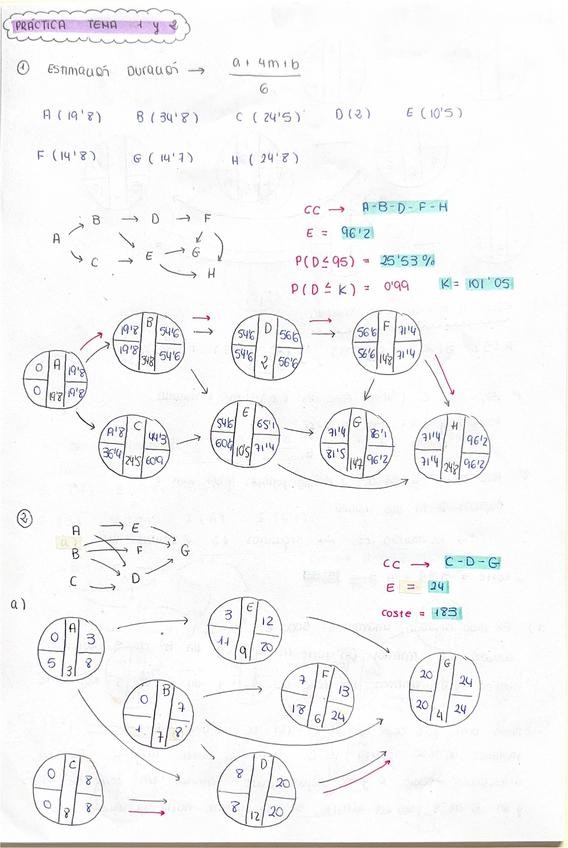 PRÁCTICA TEMA 1 y 2
① ESTIMACIÓN DURACIÓN → a + 4m + b
6
A (19'8) B (34'8) C (24'5) D (2) E (10'5)
F (14'8) G (14'7) H (24'8)
CC → A-B-D-F-H
E = 96'2
P(D ≤ 95) = 25'53 %
P(D ≤ K) = 0'99 K = 101'05
B → D → F
A
C → E → G
H
0 A 19'8
0 19'8 19'8
19'8 B 54'6
19'8 34'8 54'6
54'6 D 56'6
54'6 2 56'6
56'6 F 71'4
56'6 14'8 71'4
A'8 C 44'3
36'4 24'5 60'9
54'6 E 65'1
60'6 10'5 71'4
71'4 G 86'1
81'5 14'7 96'2
71'4 H 96'2
71'4 24'8 96'2
②
A → E
B → F G
C → D
CC → C-D-G
E = 24
coste = 183
a)
0 A 3
5 3 8
3 E 12
11 9 20
0 B 7
1 7 8
7 F 13
18 6 24
20 G 24
20 4 24
0 C 8
0 8 8
8 D 20
8 12 20